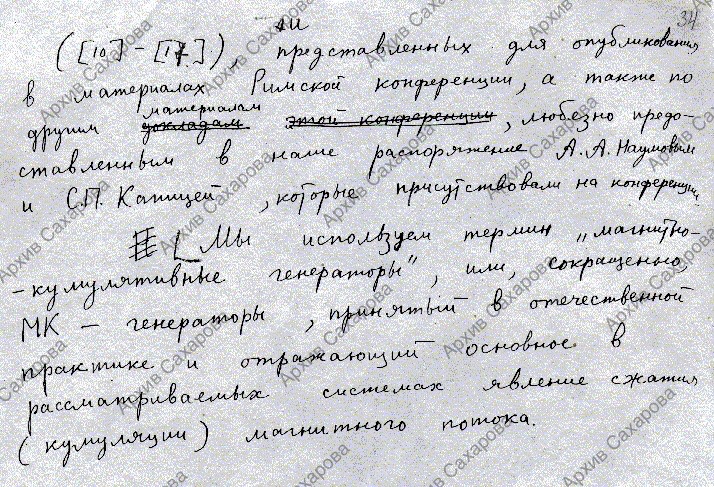 34
([10] - [17]), представленных для опубликования
в материалах Римской конференции, а также по
материалам
другим докладам этой конференции, любезно предо-
ставленным в наше распоряжение А.А. Наумовым
и С.П. Капицей, которые присутствовали на конференции.
Мы используем термин „магнитно-
-кумулятивные генераторы", или, сокращенно,
МК - генераторы, принятый в отечественной
практике и отражающий основное в
рассматриваемых системах явление сжатия
(кумуляции) магнитного потока.
Архив Сахарова